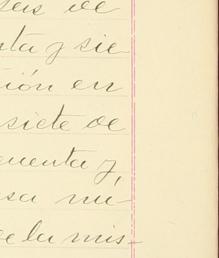 seis de
nta y sie
ión en
siete de
cuenta y,
sa nu-
de la mis-